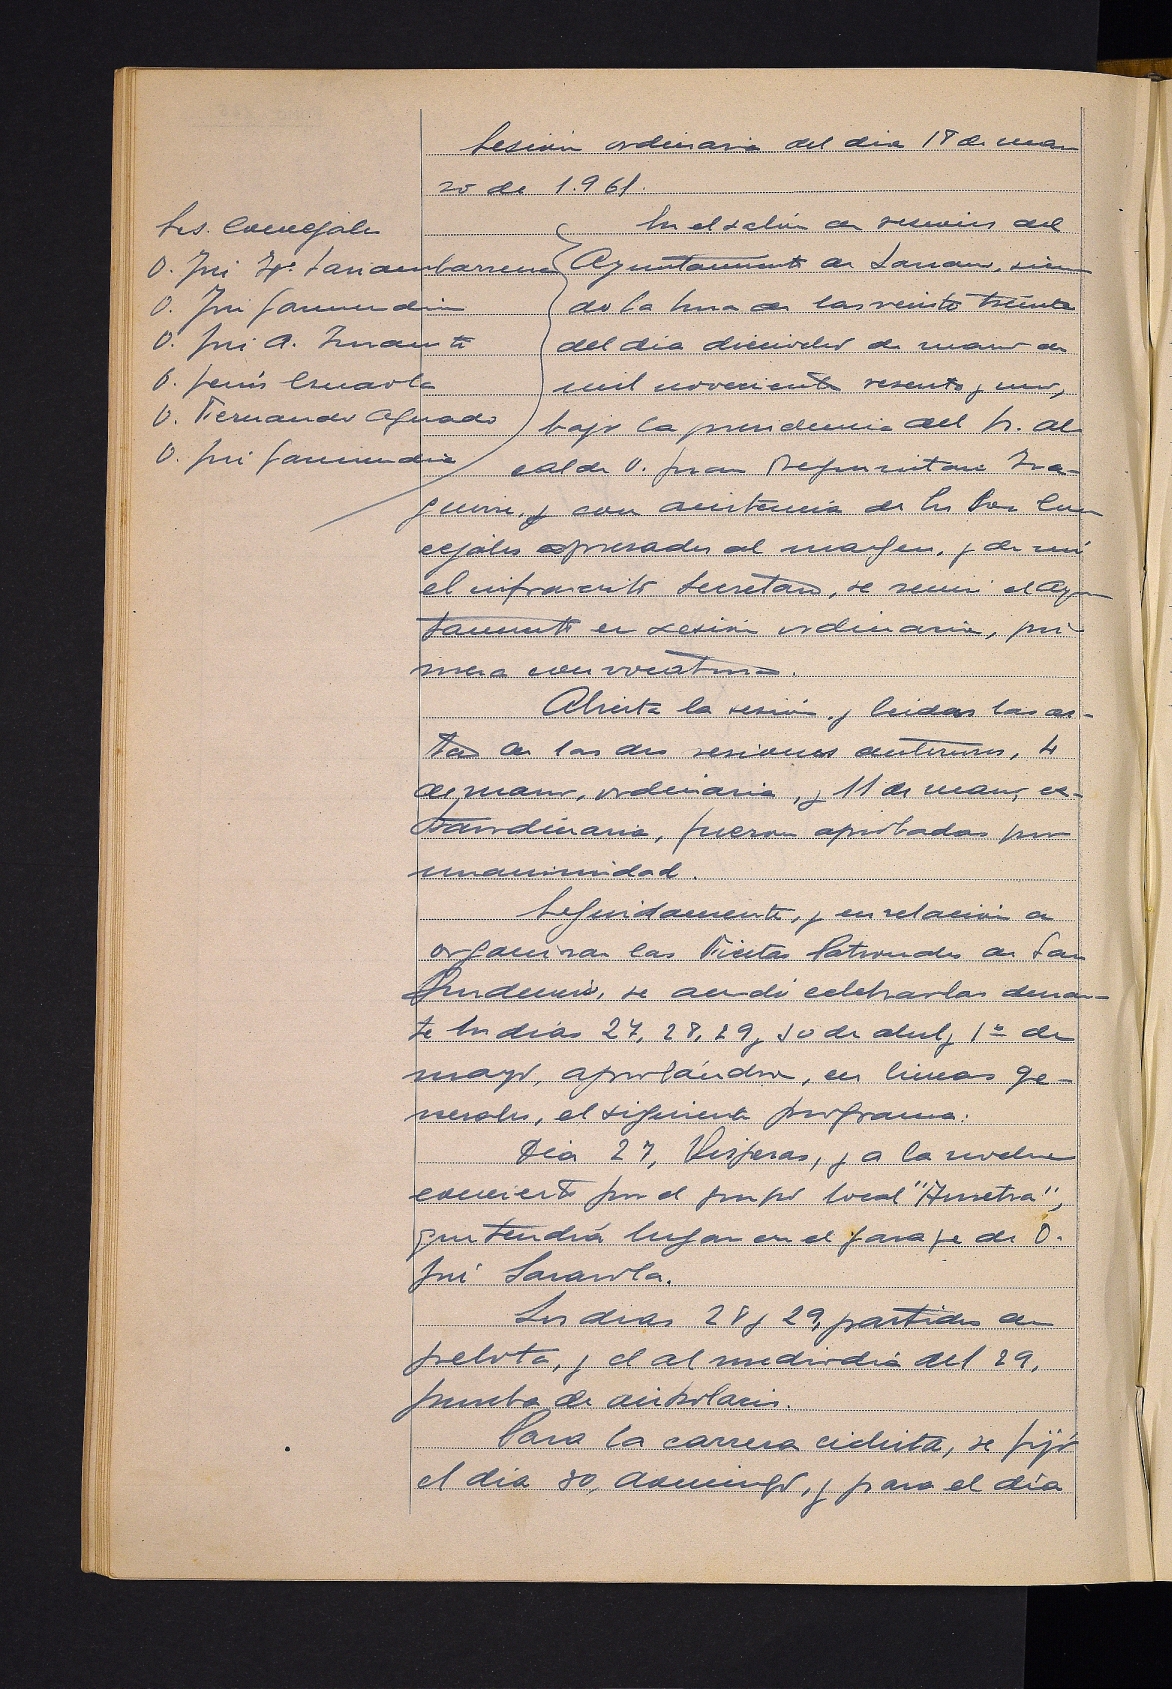 Sesión ordinaria del dia 18 de mar
zo de 1.961.
Srs. Concejales
D. José
D. José Garmendia
D. José A.
D. Jesús Esnaola
D. Fernando Aguado
D. José Garmendia
En el salón de sesiones del
Ayuntamiento de Lazcano, sien
do la hora de las veinte treinta
del dia dieciocho de marzo de
mil novecientos sesenta y uno,
bajo la presidencia del Sr. Al
calde D. Juan
y con asistencia de los Sres Con
cejales expresados al margen, y de mi
el infrascrito Secretario, se reunió el Ayun
tamiento en sesión ordinaria, pri
mera convocatoria.
Abierta la sesión, y leidas las ac-
tas de las dos sesiones anteriores, 4
de marzo, ordinaria, y 11 de marzo, ex-
traordinaria, fueron aprobadas por
unanimidad.
Seguidamente, y en relación a
organizar las Fiestas Patronales de San
Prudencio, se acordó celebrarlas duran-
te los dias 27, 28, 29, 30 de abril y 1º de
mayo, aprobándose, en lineas ge-
nerales, el siguiente programa:
Dia 27, Visperas, y a la noche
concierto por el grupo local
que tendrá lugar en el garaje de D.
José Sarasola.
Los dias 28 y 29, partidos de
pelota, y el al mediodia del 29,
prueba de aizkolaris.
Para la carrera ciclista, se fijó
el dia 30, domingo, y para el dia